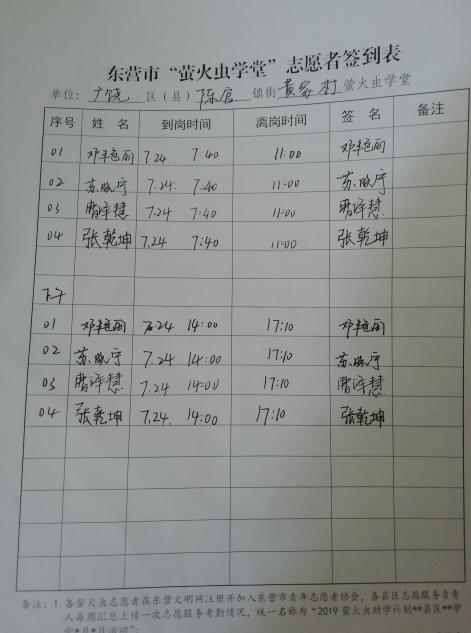 东营市“萤火虫学堂”志愿者签到表
单位：广饶 区（县）陈官 镇街 黄家村 萤火虫学堂
序号 姓名 到岗时间 离岗时间 签名 备注
01 邓艳丽 7.24 7:40 11:00 邓艳丽
02 苏 7.24. 7:40 11:00 苏
03 曹泽慧 7.24 7:40 11:00 曹泽慧
04 张乾坤 7.24 7:40 11:00 张乾坤
下午
01 邓艳丽 7.24 14:00 17:10 邓艳丽
02 苏 7.24 14:00 17:10 苏
03 曹泽慧 7.24 14:00 17:10 曹泽慧
04 张乾坤 7.24. 14:00 17:10 张乾坤
备注：1.各萤火虫志愿者在东营文明网注册并加入东营市青年志愿者协会，各县区志愿服务负责
人每周汇总上传一次志愿服务考勤情况，统一名称为“2019萤火虫助学计划**县区**学
堂*月*日活动”；